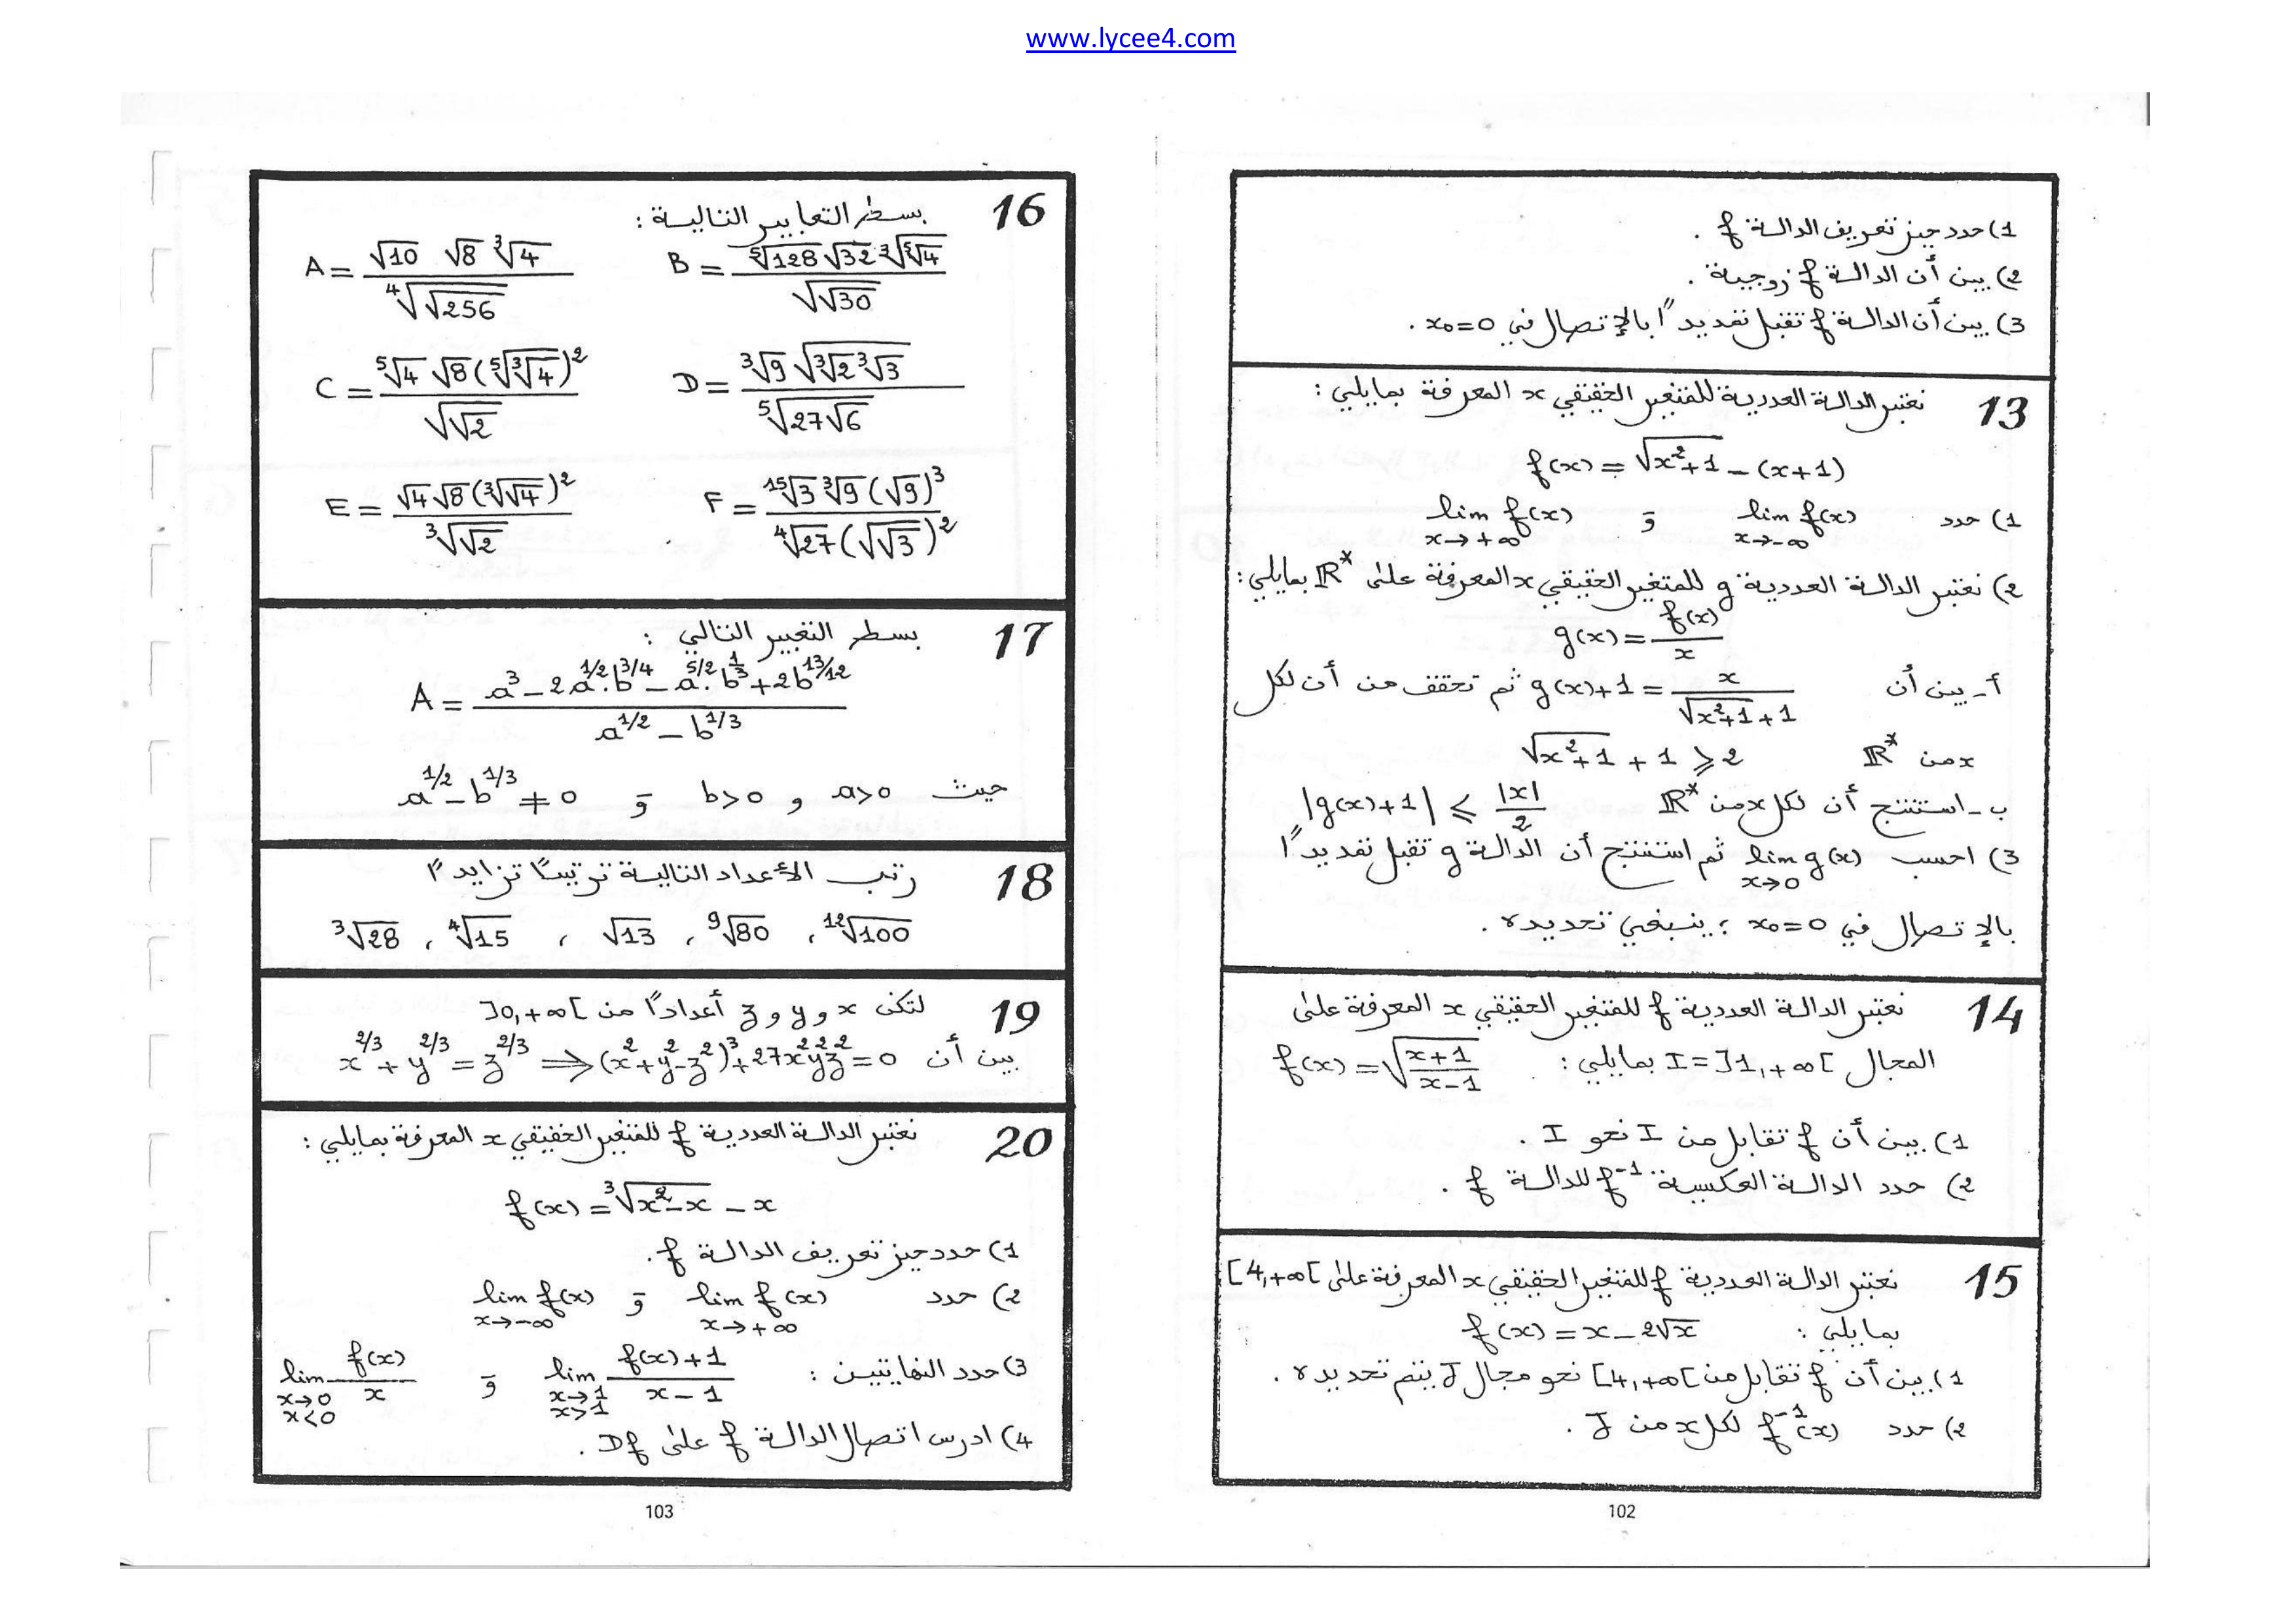 www.lycee4.com
1) حدد حيز تعريف الدالة f .
2) بين أن الدالة f زوجية .
3) بين أن الدالة f تقبل تمديداً بالإتصال في x₀=0 .
13 نعتبر الدالة العددية للمتغير الحقيقي x المعرفة بمايلي :
f(x) = √(x²+1) - (x+1)
1) حدد lim f(x) x→-∞ و lim f(x) x→+∞
2) نعتبر الدالة العددية g للمتغير الحقيقي x المعرفة على ℝ* بمايلي :
g(x) = f(x)/x
أ- بين أن g(x)+1 = x/(√(x²+1)+1) ثم تحقق من أن لكل
x من ℝ* √(x²+1) + 1 ⩾ 2
ب- استنتج أن لكل x من ℝ* |g(x)+1| ⩽ |x|/2
3) احسب lim g(x) x→0 ثم استنتج أن الدالة g تقبل تمديداً
بالإتصال في x₀=0 ؛ ينبغي تحديده .
14 نعتبر الدالة العددية f للمتغير الحقيقي x المعرفة على
المجال I = ]1,+∞[ بمايلي : f(x) = √((x+1)/(x-1))
1) بين أن f تقابل من I نحو I .
2) حدد الدالة العكسية f⁻¹ للدالة f .
15 نعتبر الدالة العددية f للمتغير الحقيقي x المعرفة على [4,+∞[
بمايلي : f(x) = x - 2√x
1) بين أن f تقابل من [4,+∞[ نحو مجال J يتم تحديده .
2) حدد f⁻¹(x) لكل x من J .
102
16 بسط التعابير التالية :
A = (√10 √8 ∛4)/(⁴√√256) B = (⁵√128 √32 ∛(⁵√4))/(√√30)
C = (⁵√4 √8 (⁵√∛4)²)/(√√2) D = (∛9 √(∛2 ∛3))/(⁵√(27√6))
E = (√4 √8 (∛√4)²)/(∛√2) F = (¹⁵√3 ∛9 (√9)³)/(⁴√27 (√√3)²)
17 بسط التعبير التالي :
A = (a³ - 2a^(1/2).b^(3/4) - a^(5/2).b^(1/3) + 2b^(13/12))/(a^(1/2) - b^(1/3))
حيث a>0 و b>0 و a^(1/2) - b^(1/3) ≠ 0
18 رتب الأعداد التالية ترتيباً تزايدياً
∛28 , ⁴√15 , √13 , ⁹√80 , ¹²√100
19 لتكن x و y و z أعداداً من ]0,+∞[
بين أن x^(2/3) + y^(2/3) = z^(2/3) ⟹ (x²+y²-z²)³+27x²y²z²=0
20 نعتبر الدالة العددية f للمتغير الحقيقي x المعرفة بمايلي :
f(x) = ∛(x²-x) - x
1) حدد حيز تعريف الدالة f .
2) حدد lim f(x) x→+∞ و lim f(x) x→-∞
3) حدد النهايتين : lim (f(x)+1)/(x-1) x→1 x>1 و lim f(x)/x x→0 x<0
4) ادرس اتصال الدالة f على Df .
103